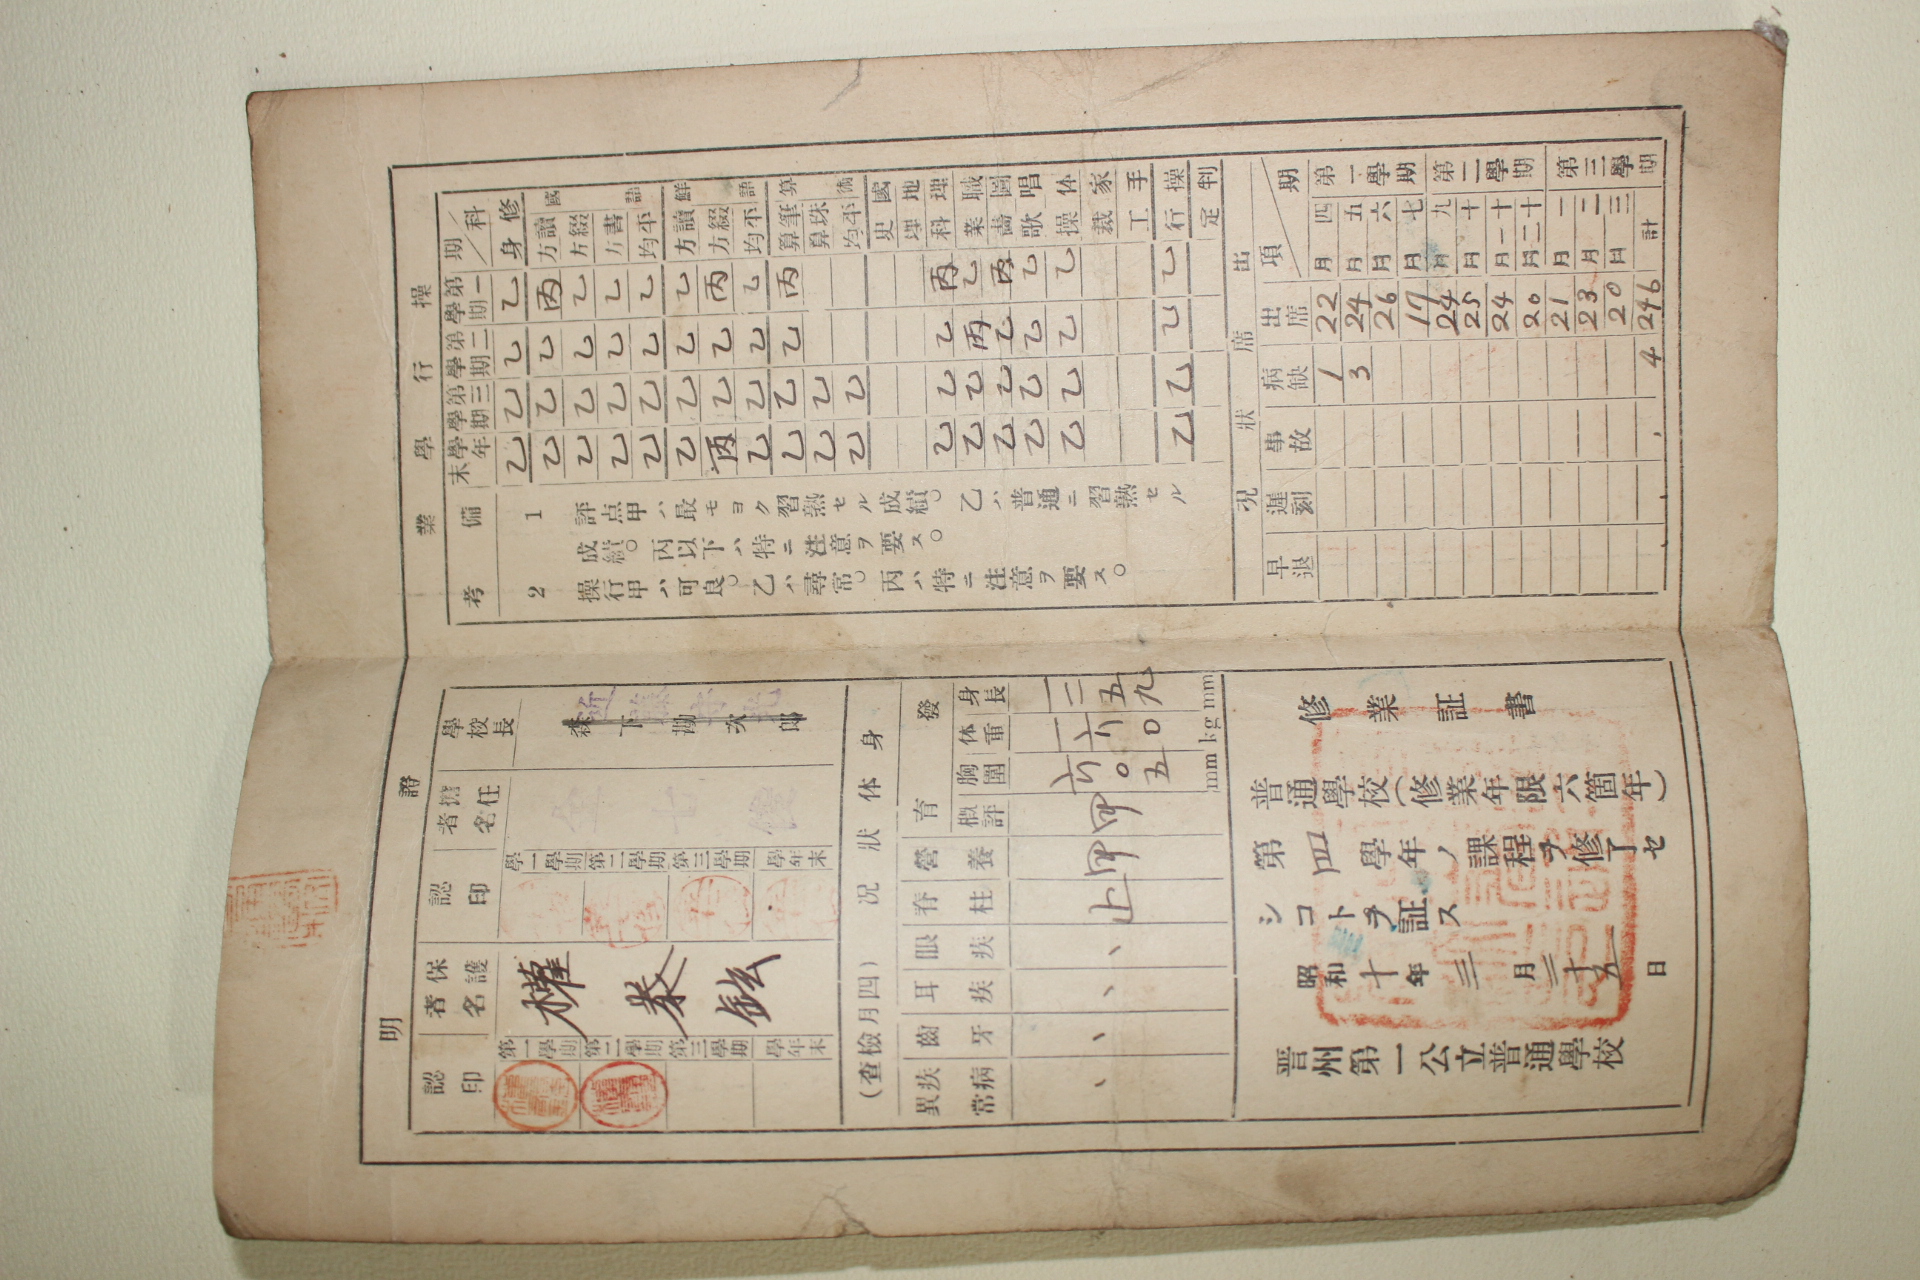 學業操行
期／科 第一學期 第二學期 第三學期 學年末
修身 乙 乙 乙 乙
國語
讀方 丙 乙 乙 乙
綴方 乙 乙 乙 乙
書方 乙 乙 乙 乙
平均 乙 乙 乙 乙
鮮語
讀方 乙 乙 乙 乙
綴方 丙 乙 乙 丙
平均 乙 乙 乙 乙
算術
筆算 丙 乙 乙 乙
珠算 乙 乙
平均 乙 乙
國史
地理
理科 丙 乙 乙 乙
職業 乙 丙 乙 乙
圖畵 丙 乙 乙 乙
唱歌 乙 乙 乙 乙
体操 乙 乙 乙 乙
家裁
手工
操行 乙 乙 乙 乙
判定
備考
1 評点甲ハ最モヨク習熟セル成績。乙ハ普通ニ習熟セル
成績。丙以下ハ特ニ注意ヲ要ス。
2 操行甲ハ可良。乙ハ尋常。丙ハ特ニ注意ヲ要ス。
出席狀況
期 項 出席 病缺 事故 遲刻 早退
第一學期
四月 22 1
五月 24 3
六月 26
七月 17
第二學期
九月 24
十月 25
十一月 24
十二月 20
第三學期
一月 21
二月 23
三月 20
計 246 4
證明
學校長
森下勘次郎
擔任者名
認印
第一學期
第二學期
第三學期
學年末
保護者名
權泰鉉
認印
第一學期
第二學期
第三學期
學年末
身体狀况(四月檢査)
發育
身長 一二五九 mm
体重 kg
胸圍 六〇五 mm
概評 甲
營養 甲
脊柱
眼疾 、
耳疾 、
齒牙 、
異常疾病 、
修業証書
普通學校(修業年限六箇年)
第四學年ノ課程ヲ修了セ
シコトヲ証ス
昭和十年三月二十五日
晋州第一公立普通學校